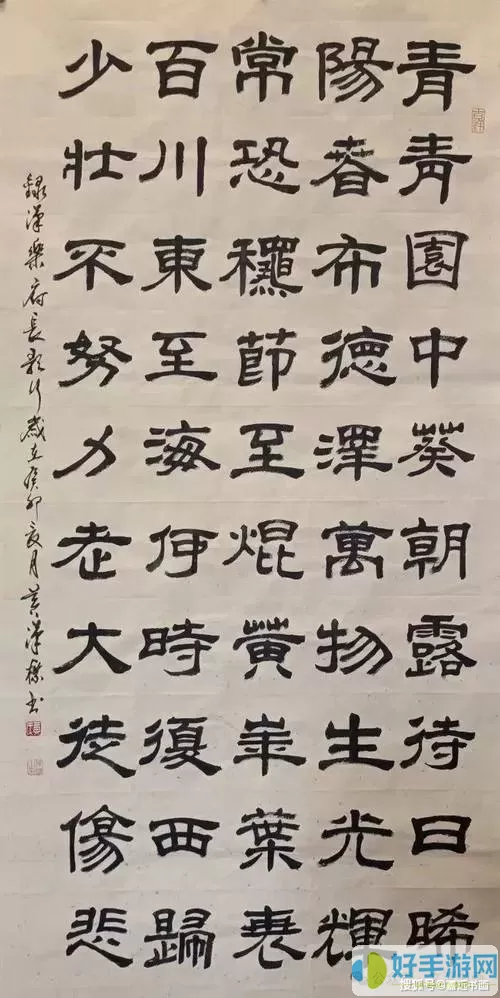 青青園中葵朝露待日晞
陽春布德澤萬物生光輝
常恐龝節至焜黃華葉衰
百川東至海何時復西歸
少壯不努力老大徒傷悲
錄漢樂府長歌行歲在癸卯夏月黃漢樑書
好手游网
搜狐号@嘉远书画